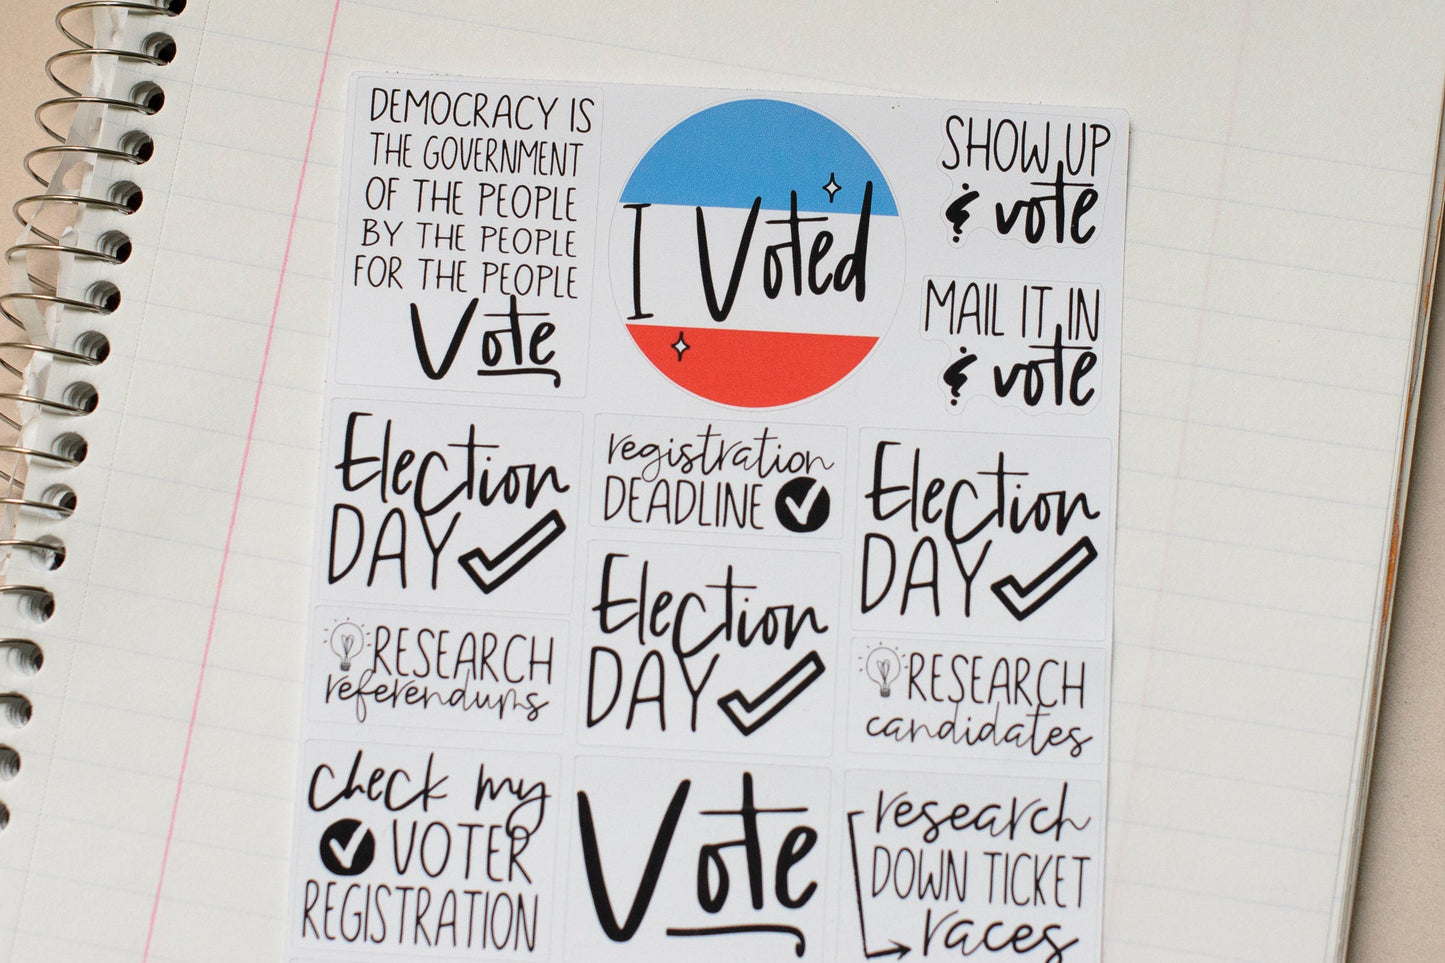 DEMOCRACY IS
THE GOVERNMENT
OF THE PEOPLE
BY THE PEOPLE
FOR THE PEOPLE
Vote
I Voted
SHOW UP
& vote
MAIL IT IN
& vote
Election
DAY
registration
DEADLINE
Election
DAY
Election
DAY
RESEARCH
referendums
RESEARCH
candidates
check my
VOTER
REGISTRATION
Vote
research
DOWN TICKET
races